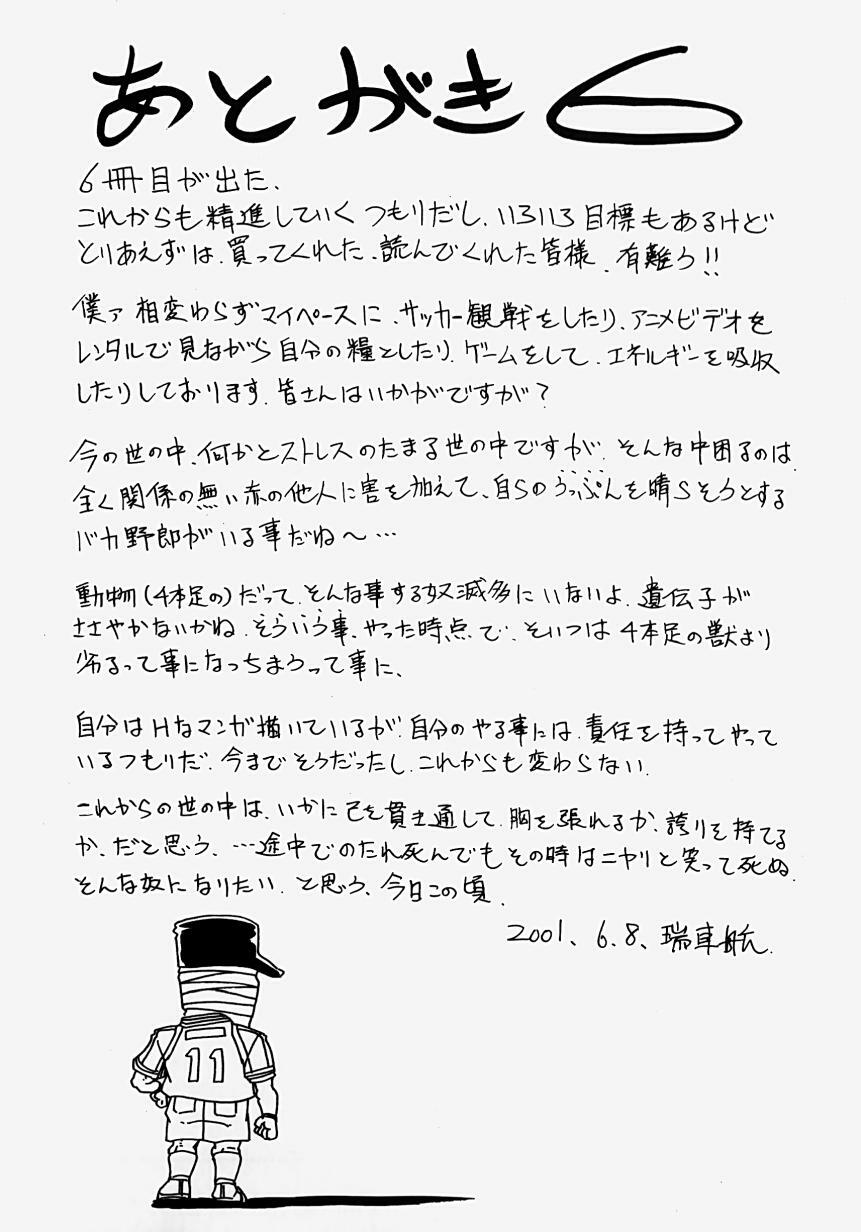 あとがき6
6冊目が出た、
これからも精進していくつもりだし、いろいろ目標もあるけど
とりあえずは、買ってくれた、読んでくれた皆様、有難う!!
僕ァ相変わらずマイペースに、サッカー観戦をしたり、アニメビデオを
レンタルで見ながら自分の糧としたり、ゲームをして、エネルギーを吸収
したりしております。皆さんはいかがですが?
今の世の中、何かとストレスのたまる世の中ですが、そんな中困るのは、
全く関係の無い赤の他人に害を加えて、自らのうっぷんを晴らそうとする
バカ野郎がいる事だね〜…
動物(4本足の)だって、そんな事する奴滅多にいないよ、遺伝子が
ささやかないかね、そういう事、やった時点で、そいつは4本足の獣より
劣るって事になっちまうって事に、
自分はHなマンガ描いているが、自分のやる事には、責任を持ってやって
いるつもりだ、今までそうだったし、これからも変わらない、
これからの世の中は、いかに己を貫き通して、胸を張れるか、誇りを持てる
か、だと思う、…途中でのたれ死んでもその時はニヤリと笑って死ぬ、
そんな奴になりたい、と思う、今日この頃、
2001、6.8、瑞車航
11